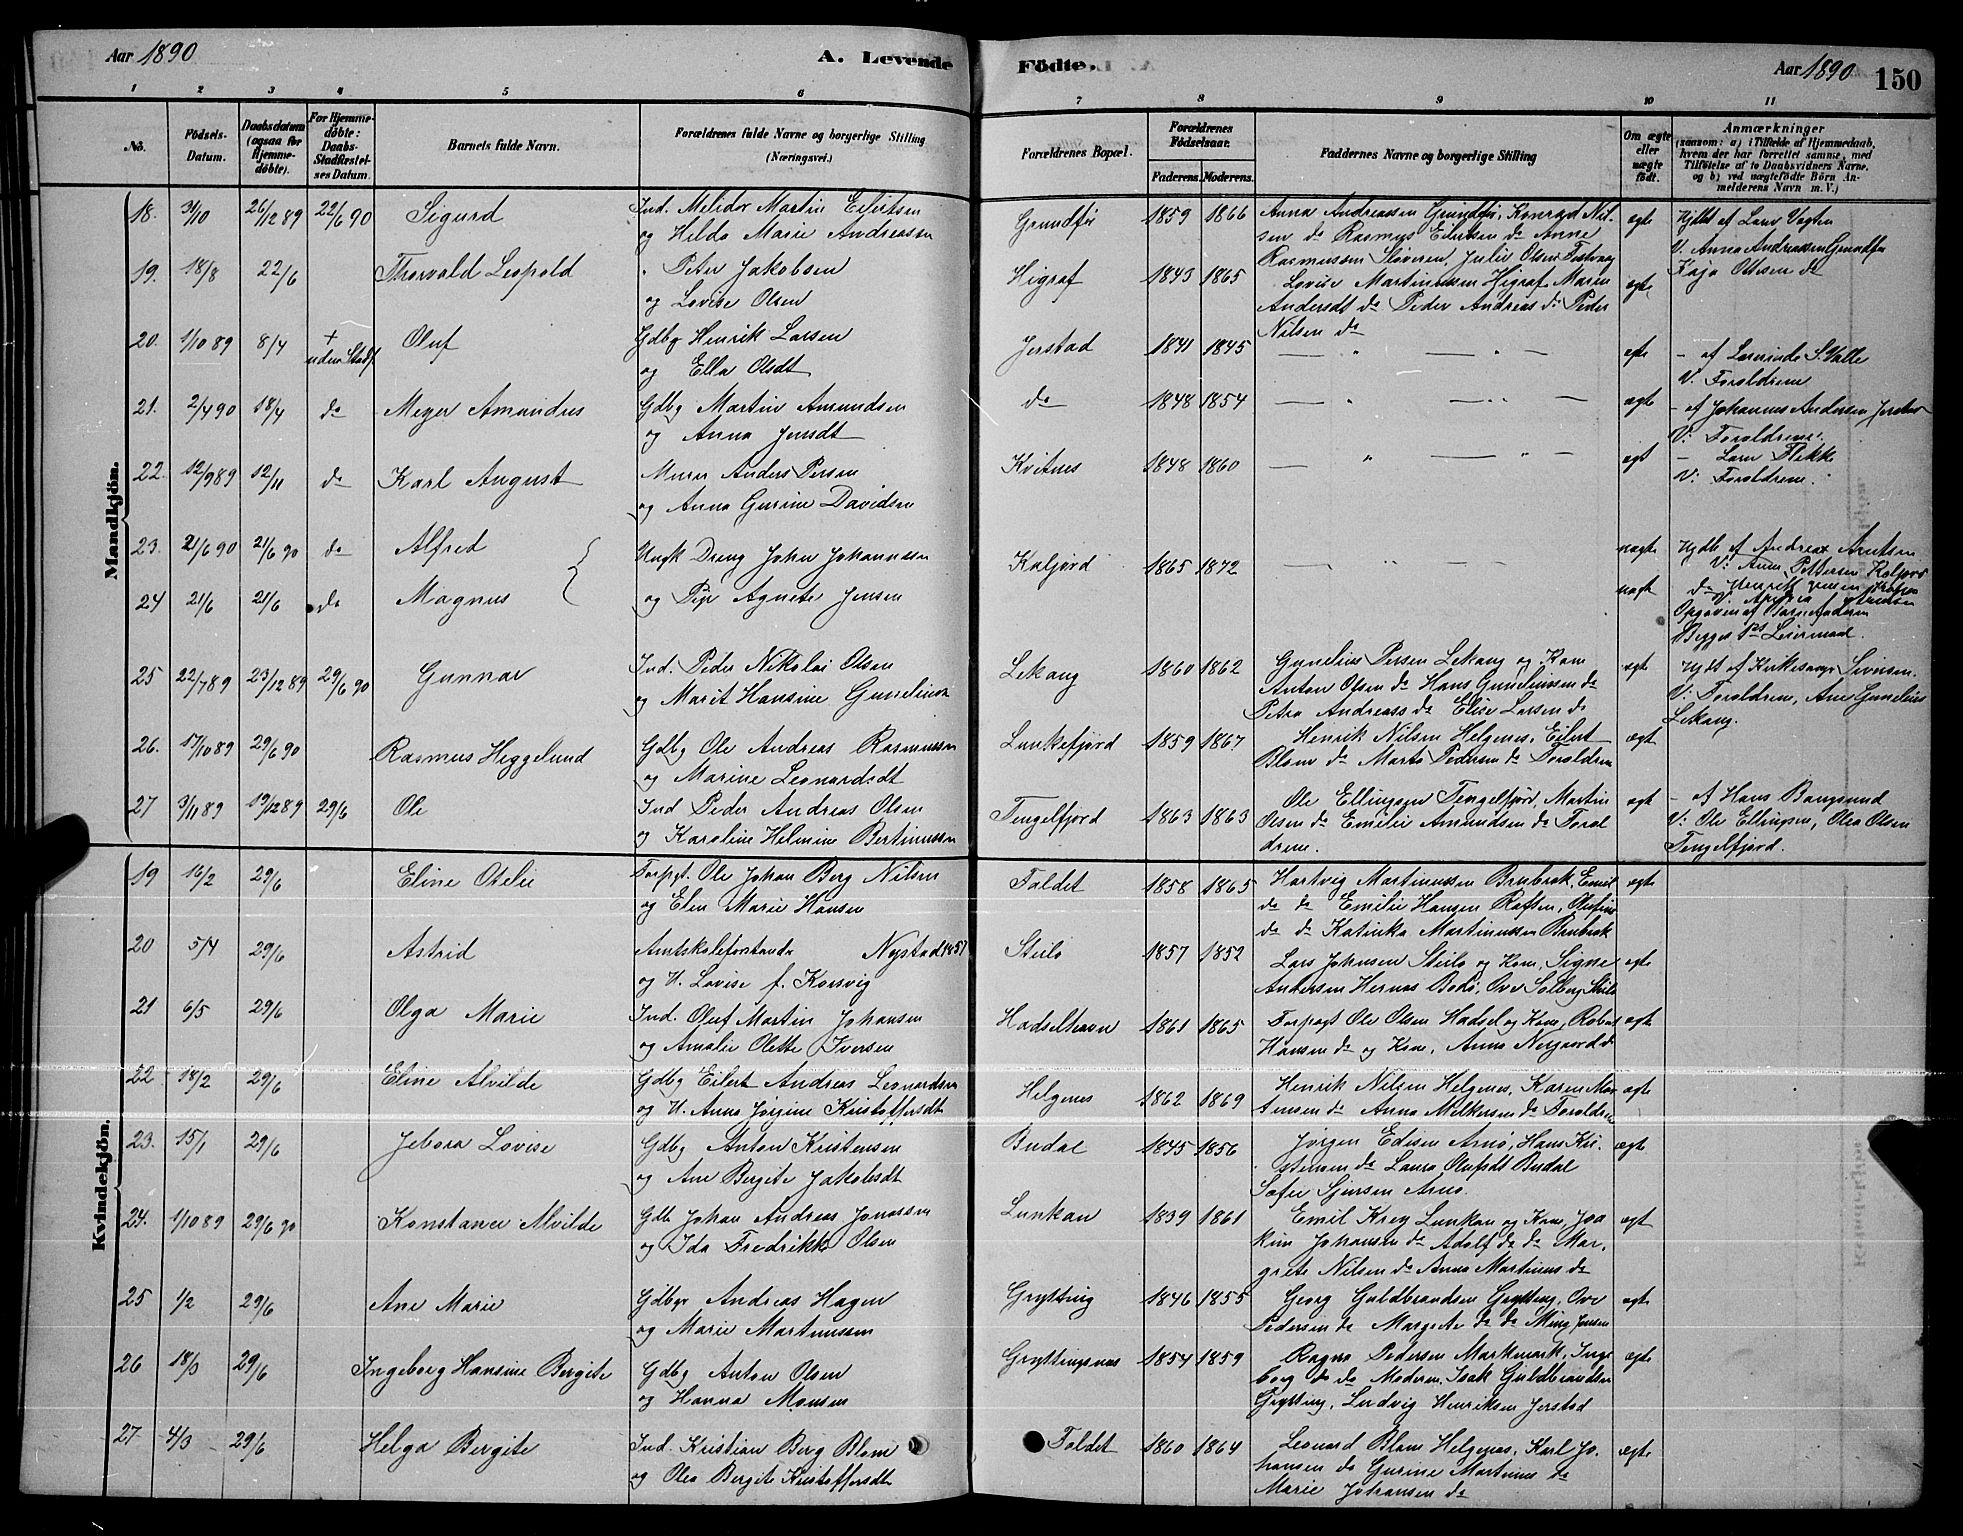 Aar 1890
A. Levende
Födte.
Aar 1890
150
1 2 3 4 5 6 7 8 9 10 11
No.
Födsels-Datum.
Daabsdatum (ogsaa for Hjemme-döbte).
For Hjemme-döbte: Daabs-Stadfæstel-ses Datum.
Barnets fulde Navn.
Forældrenes fulde Navne og borgerlige Stilling (Næringsvei.)
Forældrenes Bopæl.
Forældrenes Födselsaar.
Faderens. Moderens.
Faddernes Navne og borgerlige Stilling
Om ægte eller uægte födt.
Anmærkninger
(saasom: a) i Tilfælde af Hjemmedaab, hvem der har forrettet samme, med Tilföielse af to Daabsvidners Navne, og b) ved uægtefödte Börn An-melderens Navn m. V.)
Mandkjön.
18. 3/10 26/12 89 22/6 90 Sigurd
Ind. Melidor Martin Eilertsen
og Hilda Marie Andreassen
Grundfør 1859 1866
Anna Andreassen Grundfør, Konrad Nil-
sen do Rasmus Eilertsen do Anne
Rasmussen Julie Olsen
ægte
Hjdbt af Lars Vogten
V. Anna Andreassen Grundfør
Kaja Ottesen do
19. 18/8 22/6 Thorvald Leopold
" Peter Jakobsen
og Lovise Olsen
Higraf 1843 1865
Lovise Martinussen Higraf Maren
Andersdt do Peder Andreas do Peder
Nilsen do
ægte
20. 1/10 89 8/4 + uden Stadf. Oluf
Gdbg Henrik Larsen
og Ella Olsdt
Jerstad 1841 1845
— " — " —
egte
V. Forældrene
21. 2/4 90 18/4 do Meyer Amandus
Gdbg Martin Amundsen
og Anna Jensdt
do 1848 1854
— " — " —
ægte
- af Johannes Andersen Jerstad
V: Forældrene.
22. 12/9 89 12/11 do Karl August
Murer Anders Persen
og Anna Gurine Davidsen
Kvitnes 1848 1860
— " — " —
ægt
- Lars Flekke
V: Forældrene.
23. 21/6 90 21/6 90 do Alfred
Ungk Dreng John Johannssen
Kaljord 1865 1872
— " — " —
uægte
Hjdb af Andreas Arntsen
V: Anne Pettersen Kaljord
24 21/6 21/6 do Magnus
og Pige Agnete Jensen
uægt
Opgaven af
Begges 1ste Leiermaal.
25 22/7 89 23/12 89 29/6 90 Gunnar
Ind. Peder Nikolai Olsen
og Marit Hansine Guneliusd
Lekang 1860 1862
Gunelius Persen Lekang og Kone
Anton Olsen do Hans Guneliussen do
Petra Andreass do Elise Larsen do
ægte
Hjdt af Kirkesanger Sivertsen.
V: Forældrene, Ane Gunelius
Lekang.
26. 17/10 89 29/6 90 Rasmus Heggelund
Gdbg Ole Andreas Rasmussen
og Marine Leonardsdt
Lunkefjord 1859 1867
Henrik Nilsen Helgenes, Eilert
Blom do Marta Pedersen do Forældren
ægt
27 3/11 89 19/12 89 29/6 Ole
Ind Peder Andreas Olsen
og Karoline Helmine Bertinussen
Tengelfjord 1863 1863
Ole Ellingsen Tengelfjord, Martin
Olsen do Emilie Amundsen do Foræl
drene.
ægt
- af Hans Bangsund
V: Ole Ellingsen, Olea Olsen
Tengelfjord.
Kvindekjön.
19 16/2 29/6 Eline Otelie
Forpgt. Ole Johan Berg Nilsen
og Elen Marie Hansen
Faldet 1858 1865
Hartvig Martinussen Brubrok, Emil
do do Emilie Hansen Raften,
do do Katinka Martinussen Brubrok
ægte
20 5/4 29/6 Astrid
Amtskoleforstander Nystad 1857
og H. Lovise f. Korsvig
Steilo 1857 1852
Lars Johnsen Steilo og Kone, Signe
Andersen Hernes Bodø, Ove Solberg Steilo
egte
21 6/5 29/6 Olga Marie
Ind. Oluf Martin Johansen
og Amalie Olette Iversen
Hadselhavn 1861 1865
Forpagt Ole Olsen Hadsel og Kone, Robert
Hansen do og Kone, Anna Nergaard do
ægte
22 18/2 29/6 Eline Alvilde
Gdbg Eilert Andreas Leonardsen
og H. Anna Jørgine Kristoffersdt
Helgenes 1862 1869
Henrik Nilsen Helgenes, Karen Mor
tensen do Anna Melkersen do Forældren
ægte
23. 15/1 29/6 Jebora Lovise
Gdbg Anton Kristensen
og Ane Bergite Jakobsdt
Budal 1845 1856
Jørgen Edisen Arnø, Hans Kri-
stensen do Laura Olufsdt Budal
Sofie Sjursen Arnø.
ægte
24. 1/10 89 29/6 90 Konstance Alvilde
Gdb Johan Andreas Jonassen
og Ida Fredrikke Olsen
Lunkan 1839 1861
Emil Krey Lunkan og Kone, Joa
kim Johansen do Adolf do do Mar,
grete Nilsen do Anna Martinus do
ægt
25 1/2 29/6 Ane Marie
Gdbgr Andreas Hagen
og Marie Martinussen
Grytting 1846 1855
Georg Guldbrandsen Grytting, Ove
Pedersen do Margrete do do Jensen
ægte
26 18/3 29/6 Ingeborg Hansine Bergite
Gdbg Anton Olsen
og Hanna Monsen
Gryttingsnes 1854 1859
Ragna Pedersen Markmark, Inge
borg do do Moderen, Isak Guldbrandsen
Grytting, Ludvig Henriksen Jerstad
ægte
27 4/3 29/6 Helga Bergite
Ind. Kristian Berg Blom
og Olea Bergite Kristoffersdt
Faldet 1860 1864
Leonard Blom Helgenes, Karl Jo.
hansen do Gurine Martinus do
Marie Johansen do
ægte